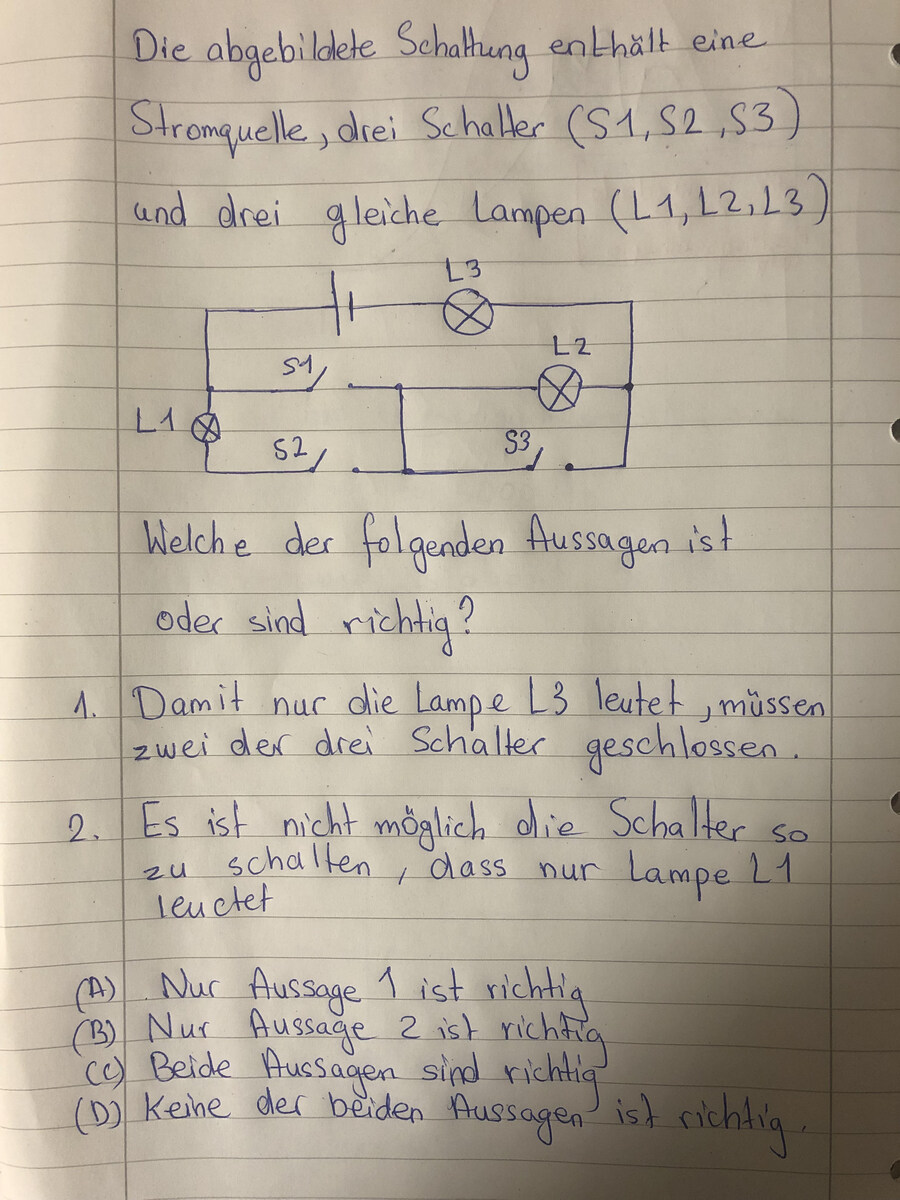 Die abgebildete Schaltung enthält eine
Stromquelle, drei Schalter (S1, S2, S3)
und drei gleiche Lampen (L1, L2, L3)
L3
L2
S1
L1
S2
S3
Welche der folgenden Aussagen ist
oder sind richtig?
1. Damit nur die Lampe L3 leutet, müssen
zwei der drei Schalter geschlossen.
2. Es ist nicht möglich die Schalter so
zu schalten, dass nur Lampe L1
leuctet
(A) Nur Aussage 1 ist richtig
(B) Nur Aussage 2 ist richtig
(C) Beide Aussagen sind richtig
(D) Keine der beiden Aussagen ist richtig.